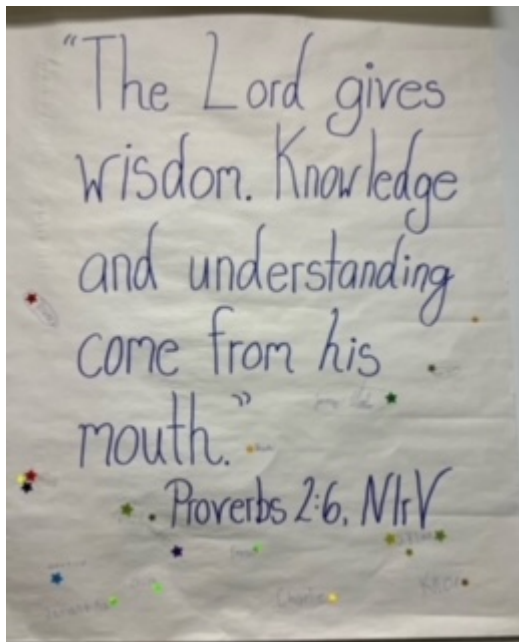 “The Lord gives
wisdom. Knowledge
and understanding
come from his
mouth.”
Proverbs 2:6, NIrV
Charlie